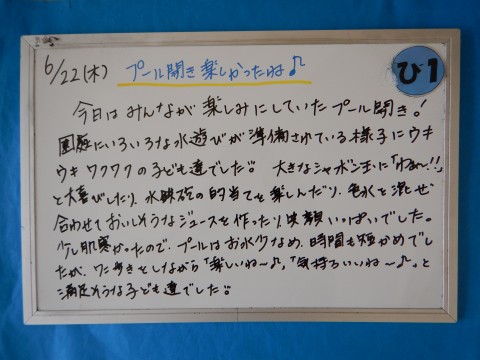 6/22(木) プール開き楽しかったね♪
ひ1
今日はみんなが楽しみにしていたプール開き！
園庭にいろいろな水遊びが準備されている様子にウキ
ウキワクワクの子ども達でした。大きなシャボン玉に「わぁー!!」
と大喜びしたり、水鉄砲の的当てを楽しんだり、色水を混ぜ
合わせておいしそうなジュースを作ったり笑顔いっぱいでした。
少し肌寒かったので、プールはお水少なめ、時間も短かめでし
たが、ワニ歩きをしながら「楽しいね～♪」「気持ちいいね～♪」と
満足そうな子ども達でした。